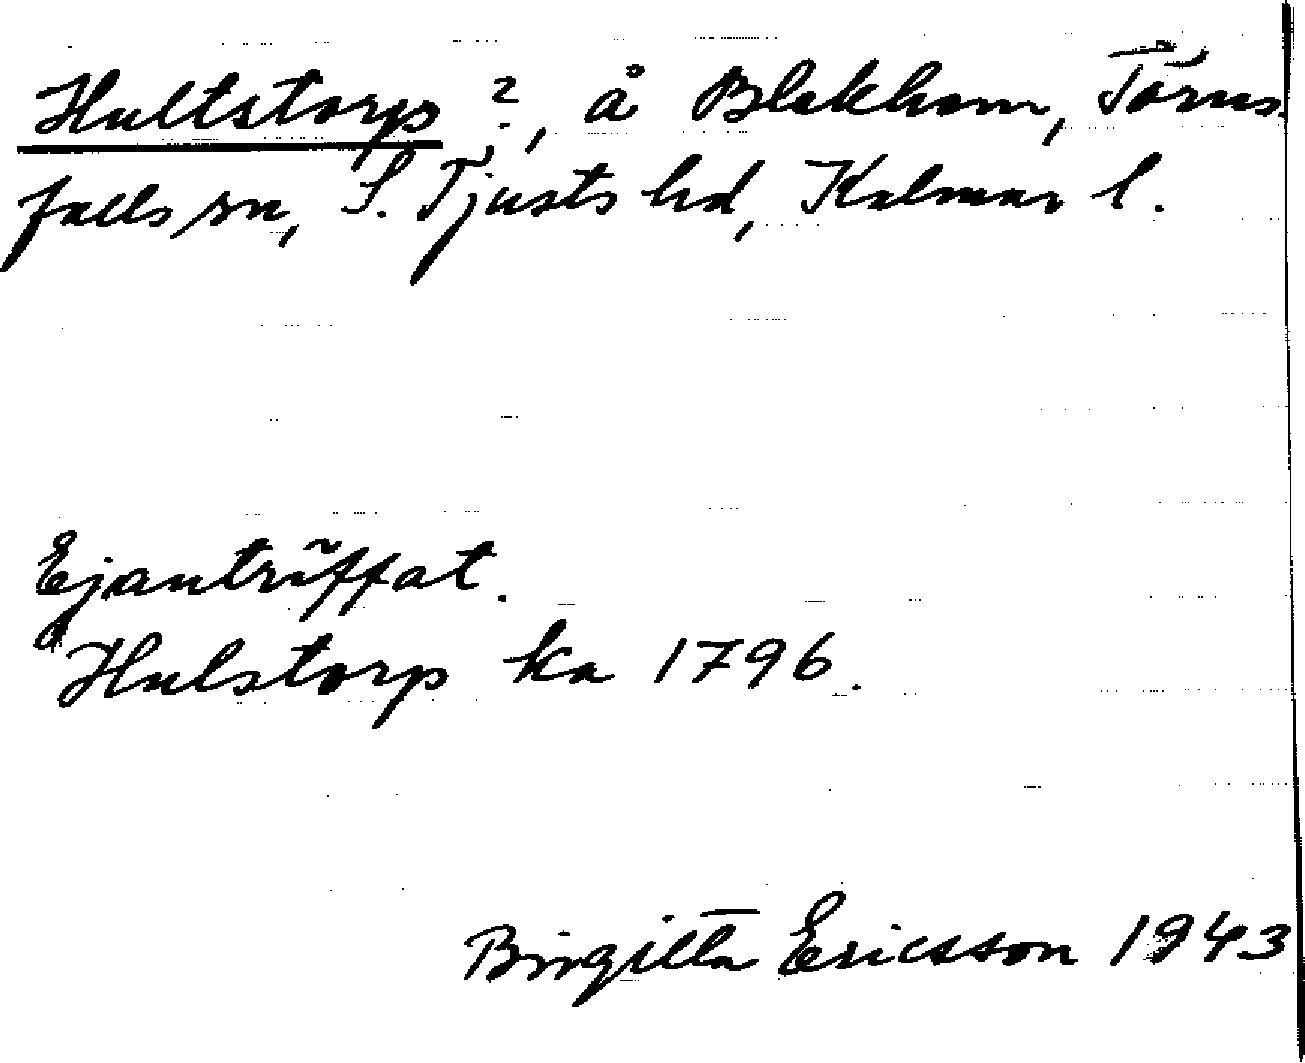 Hultstorp ?, å Blekhem, Törns
falls sn, S. Tjusts hd, Kalmar l.
Ej anträffat.
Hulstorp ka 1796.
Birgitta Ericsson 1943